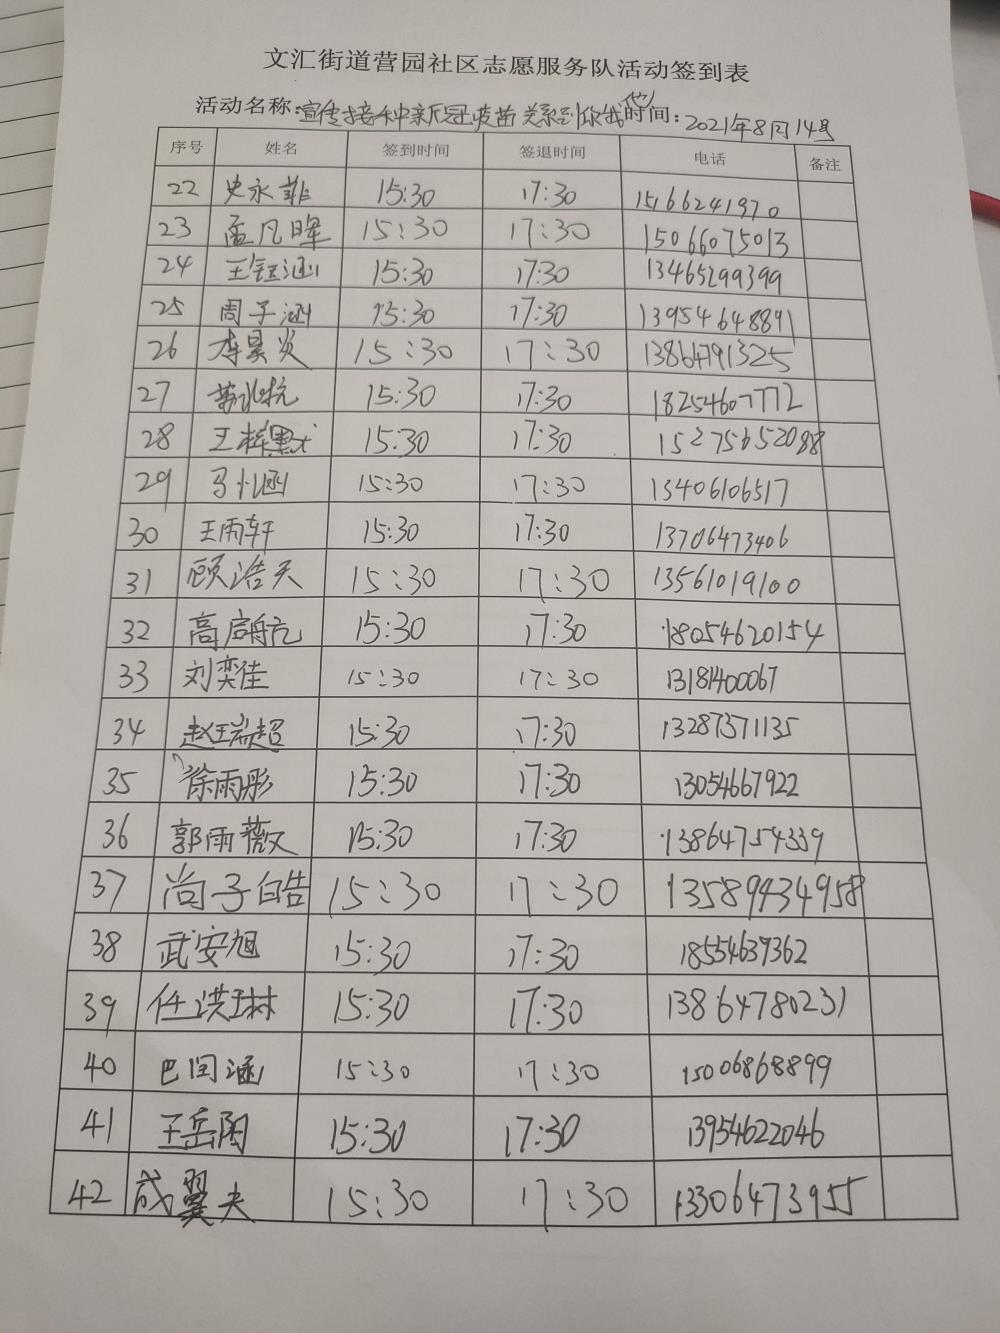 文汇街道营园社区志愿服务队活动签到表
活动名称:宣传接种新冠疫苗 关系到你我(他) 时间:2021年8月14号
序号 姓名 签到时间 签退时间 电话 备注
22 史永菲 15:30 17:30 15166241970
23 孟凡晖 15:30 17:30 15066075013
24 王钰涵 15:30 17:30 13465299399
25 周子涵 15:30 17:30 13954648891
26 李昊炎 15:30 17:30 13864791325
27 15:30 17:30 18254607772
28 王梓默 15:30 17:30 15275652088
29 马忆涵 15:30 17:30 13406106517
30 王雨轩 15:30 17:30 13706473406
31 顾浩天 15:30 17:30 13561019100
32 高启航 15:30 17:30 18054620154
33 刘奕佳 15:30 17:30 13181400067
34 赵瑞超 15:30 17:30 13287371135
35 徐雨彤 15:30 17:30 13054667922
36 郭雨薇 15:30 17:30 13864754339
37 尚子皓 15:30 17:30 13589434958
38 武安旭 15:30 17:30 18554639362
39 任洪琳 15:30 17:30 13864780231
40 巴闰涵 15:30 17:30 15006868899
41 王岳阳 15:30 17:30 13954622046
42 成翼夫 15:30 17:30 13306473955